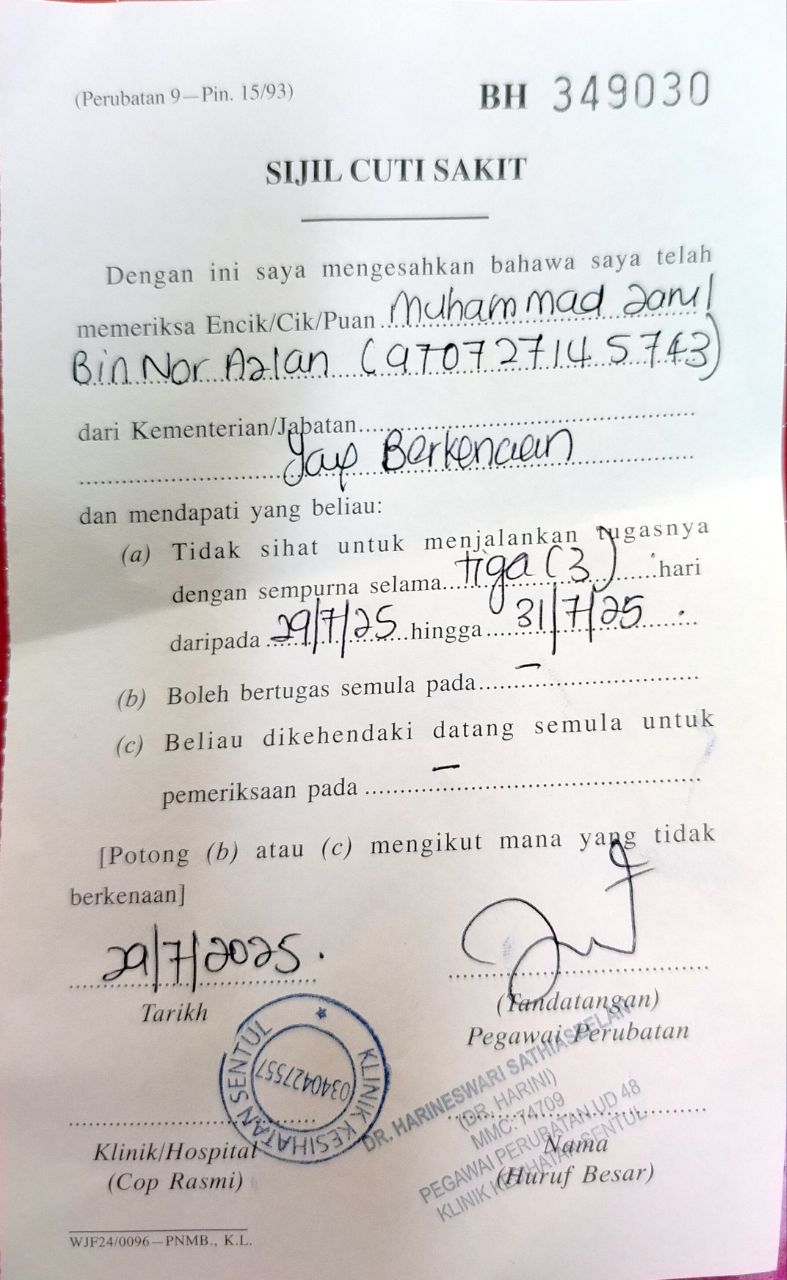 (Perubatan 9—Pin. 15/93)
BH 349030
SIJIL CUTI SAKIT
Dengan ini saya mengesahkan bahawa saya telah
memeriksa Encik/Cik/Puan Muhammad
Bin Nor Azlan (970727145743)
dari Kementerian/Jabatan
Yang Berkenaan
dan mendapati yang beliau:
(a) Tidak sihat untuk menjalankan tugasnya
dengan sempurna selama tiga (3) hari
daripada 29/7/25 hingga 31/7/25.
(b) Boleh bertugas semula pada –
(c) Beliau dikehendaki datang semula untuk
pemeriksaan pada –
[Potong (b) atau (c) mengikut mana yang tidak
berkenaan]
29/7/2025.
Tarikh
(Tandatangan)
Pegawai Perubatan
KLINIK KESIHATAN SENTUL
0340427557
DR. HARINESWARI SATHIASEELAN
(DR. HARINI)
MMC: 74709
PEGAWAI PERUBATAN UD 48
KLINIK KESIHATAN SENTUL
Klinik/Hospital
(Cop Rasmi)
Nama
(Huruf Besar)
WJF24/0096—PNMB., K.L.